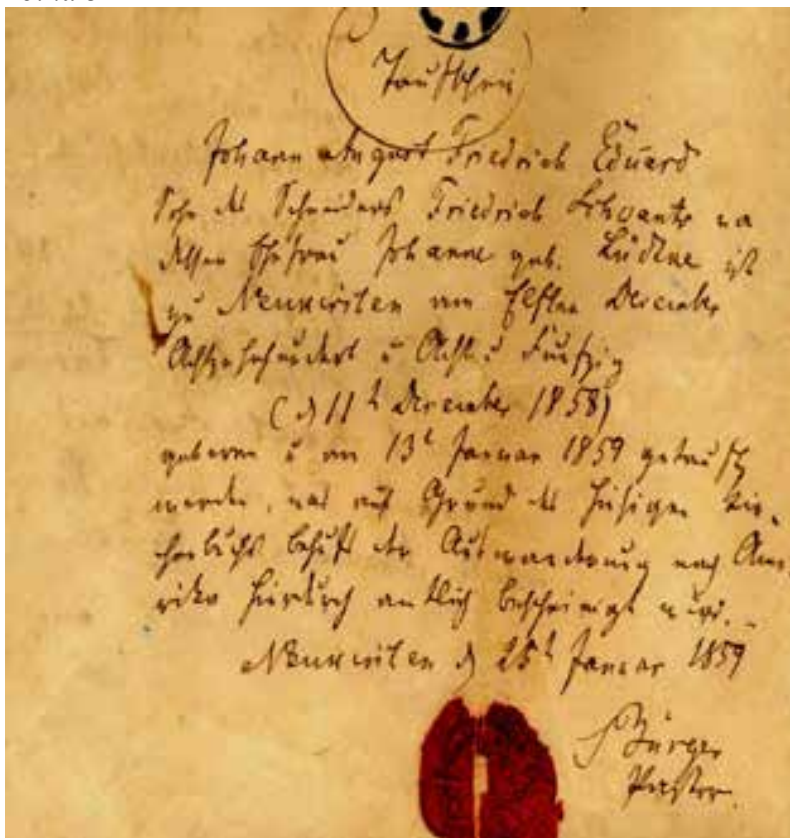 Taufschein
Johann August Friedrich Eduard
Sohn des Schneiders Friedrich Schwantz u
dessen Ehefrau Johanne geb. Lüdtke ist
zu Neukirchen am Elften December
Achtzehnhundert u Acht u Funfzig
(d 11t December 1858)
geboren u am 13t Januar 1859 getauft
worden, was auf Grund des hiesigen Kir-
chenbuchs behufs der Auswanderung nach Ame-
rika hierdurch amtlich bescheinigt wird.
Neukirchen d 25t Januar 1859
Bürger
Pastor.